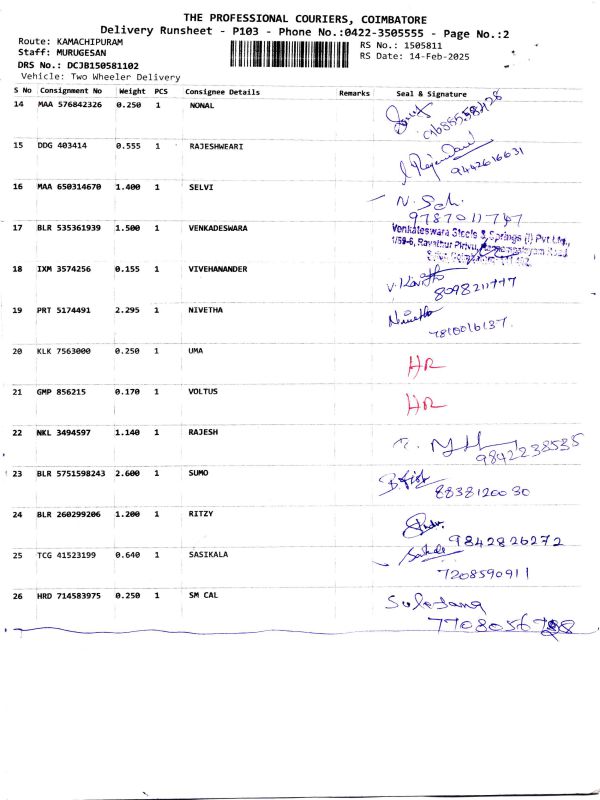 THE PROFESSIONAL COURIERS, COIMBATORE
Delivery Runsheet - P103 - Phone No.:0422-3505555 - Page No.:2
Route: KAMACHIPURAM
RS No.: 1505811
Staff: MURUGESAN
RS Date: 14-Feb-2025
DRS No.: DCJB150581102
Vehicle: Two Wheeler Delivery
S No Consignment No Weight PCS Consignee Details Remarks Seal & Signature
14 MAA 576842326 0.250 1 NONAL
15 DDG 403414 0.555 1 RAJESHWEARI
9442616631
16 MAA 650314670 1.400 1 SELVI
17 BLR 535361939 1.500 1 VENKADESWARA
Venkateswara Steels & Springs (I) Pvt Ltd.,
18 IXM 3574256 0.155 1 VIVEHANANDER
8098211777
19 PRT 5174491 2.295 1 NIVETHA
Nivetha
7810016137.
20 KLK 7563000 0.250 1 UMA
HR
21 GMP 856215 0.170 1 VOLTUS
HR
22 NKL 3494597 1.140 1 RAJESH
9842238535
23 BLR 5751598243 2.600 1 SUMO
8838120030
24 BLR 260299206 1.200 1 RITZY
9842826272
25 TCG 41523199 0.640 1 SASIKALA
7208590911
26 HRD 714583975 0.250 1 SM CAL